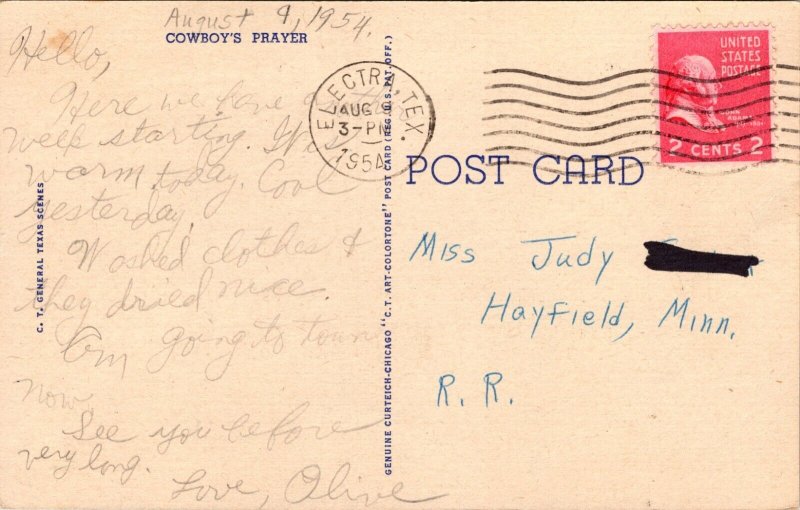 August 9, 1954.
COWBOY'S PRAYER
Hello,
Here we have another
week starting. It's
warm today. Cool
yesterday.
Washed clothes &
they dried nice.
Am going to town
now.
See you before
very long.
Love, Olive
C. T. GENERAL TEXAS SCENES
GENUINE CURTEICH-CHICAGO "C.T. ART-COLORTONE" POST CARD (REG. U.S. PAT. OFF.)
ELECTRA, TEX.
AUG
3-PM
1954
UNITED
STATES
POSTAGE
JOHN
ADAMS
2 CENTS 2
POST CARD
Miss Judy
Hayfield, Minn.
R. R.